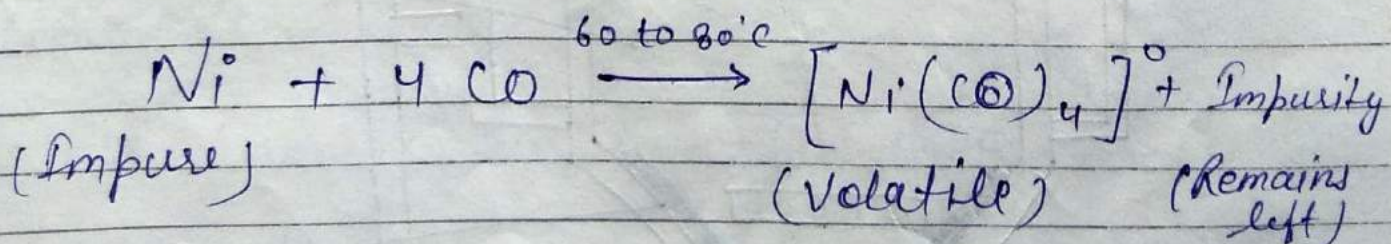 60 to 80°C
Ni + 4 CO ⟶ [Ni(CO)₄]⁰ + Impurity
(Impure) (Volatile) (Remains
left)